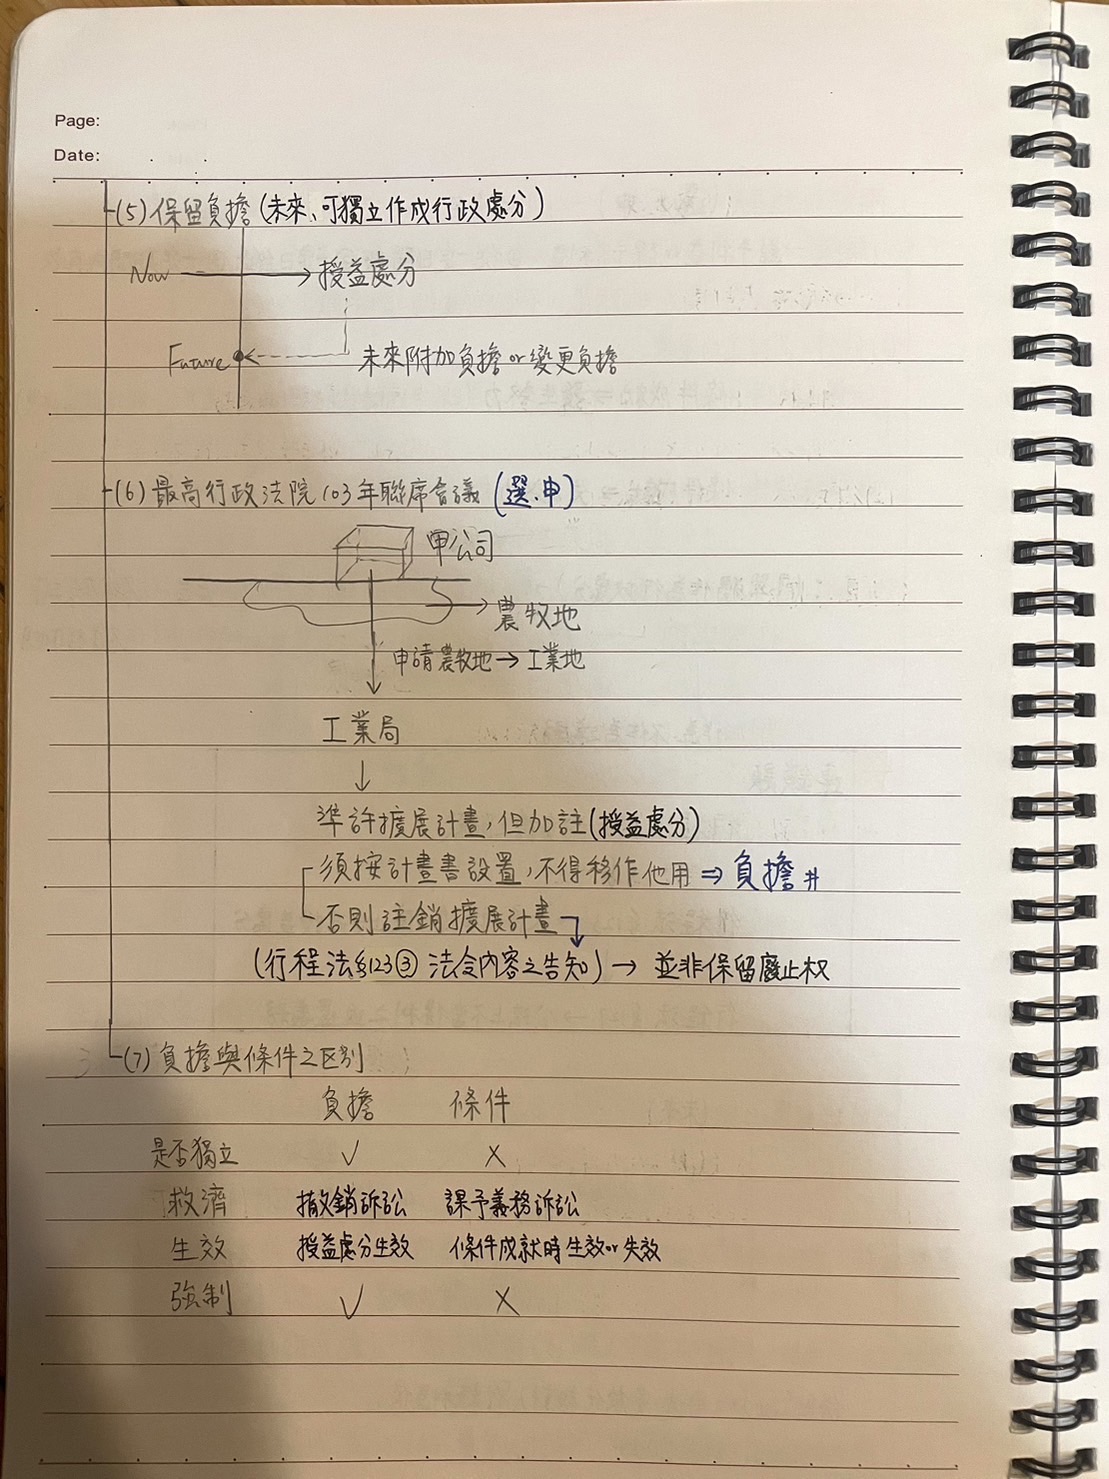 Page:
Date:
(5) 保留負擔 (未來、可獨立作成行政處分)
Now → 授益處分
Future 未來附加負擔 or 變更負擔
(6) 最高行政法院 103年聯席會議 (選、申)
甲公司
農牧地
申請農牧地 → 工業地
工業局
↓
準許擴展計畫,但加註(授益處分)
須按計畫書設置,不得移作他用 ⇒ 負擔 #
否則註銷擴展計畫
(行程法§123③ 法令內容之告知) → 並非保留廢止权
(7) 負擔與條件之区別
負擔 條件
是否獨立 ✓ ×
救濟 撤銷訴訟 課予義務訴訟
生效 授益處分生效 條件成就時生效or失效
強制 ✓ ×